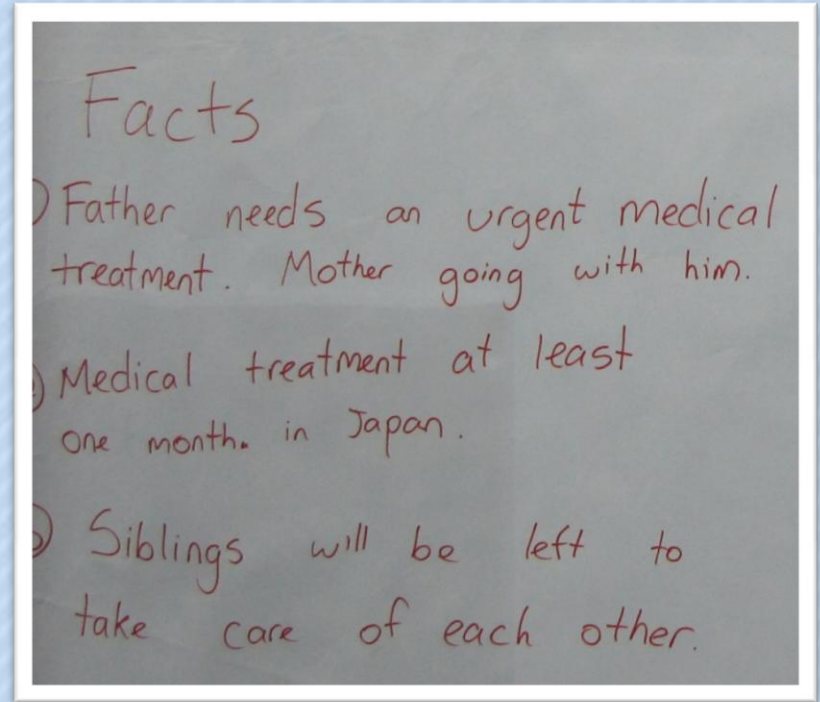 Facts
) Father needs an urgent medical
treatment. Mother going with him.
) Medical treatment at least
one month. in Japan.
) Siblings will be left to
take care of each other.